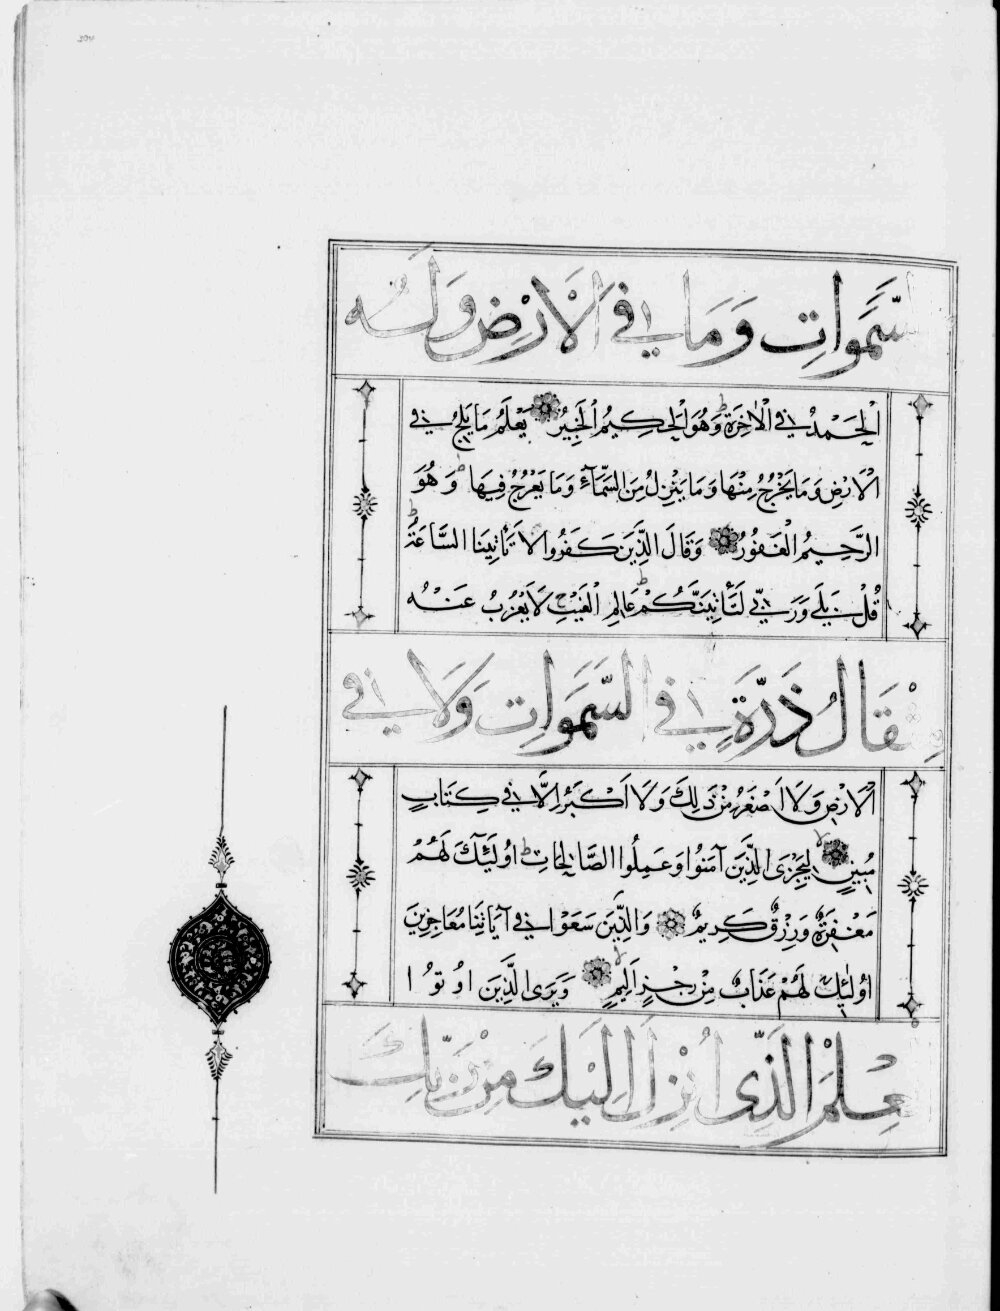 لسَّمَوَاتِ وَمَا فِي الْاَرْضِ وَلَهُ
الْحَمْدُ فِي الْاٰخِرَةِ ط وَهُوَ الْحَكِيمُ الْخَبِيرُ يَعْلَمُ مَا يَلِجُ فِي
الْاَرْضِ وَمَا يَخْرُجُ مِنْهَا وَمَا يَنْزِلُ مِنَ السَّمَآءِ وَمَا يَعْرُجُ فِيهَا ط وَهُوَ
الرَّحِيمُ الْغَفُورُ وَقَالَ الَّذِينَ كَفَرُوا لَا تَأْتِينَا السَّاعَةُ ط
قُلْ بَلَى وَرَبِّي لَتَأْتِيَنَّكُمْ ط عَالِمِ الْغَيْبِ لَا يَعْزُبُ عَنْهُ
مِثْقَالُ ذَرَّةٍ فِي السَّمَوَاتِ وَلَا فِي
الْاَرْضِ وَلَا اَصْغَرُ مِنْ ذَلِكَ وَلَا اَكْبَرُ اِلَّا فِي كِتَابٍ
مُبِينٍ لا لِيَجْزِيَ الَّذِينَ آمَنُوا وَعَمِلُوا الصَّالِحَاتِ ط اُولَئِكَ لَهُمْ
مَغْفِرَةٌ وَرِزْقٌ كَرِيمٌ وَالَّذِينَ سَعَوْا فِي آيَاتِنَا مُعَاجِزِينَ
اُولَٰئِكَ لَهُمْ عَذَابٌ مِنْ رِجْزٍ اَلِيمٍ لا وَيَرَى الَّذِينَ اُوتُوا
لْعِلْمَ الَّذِي اُنْزِلَ اِلَيْكَ مِنْ رَبِّكَ